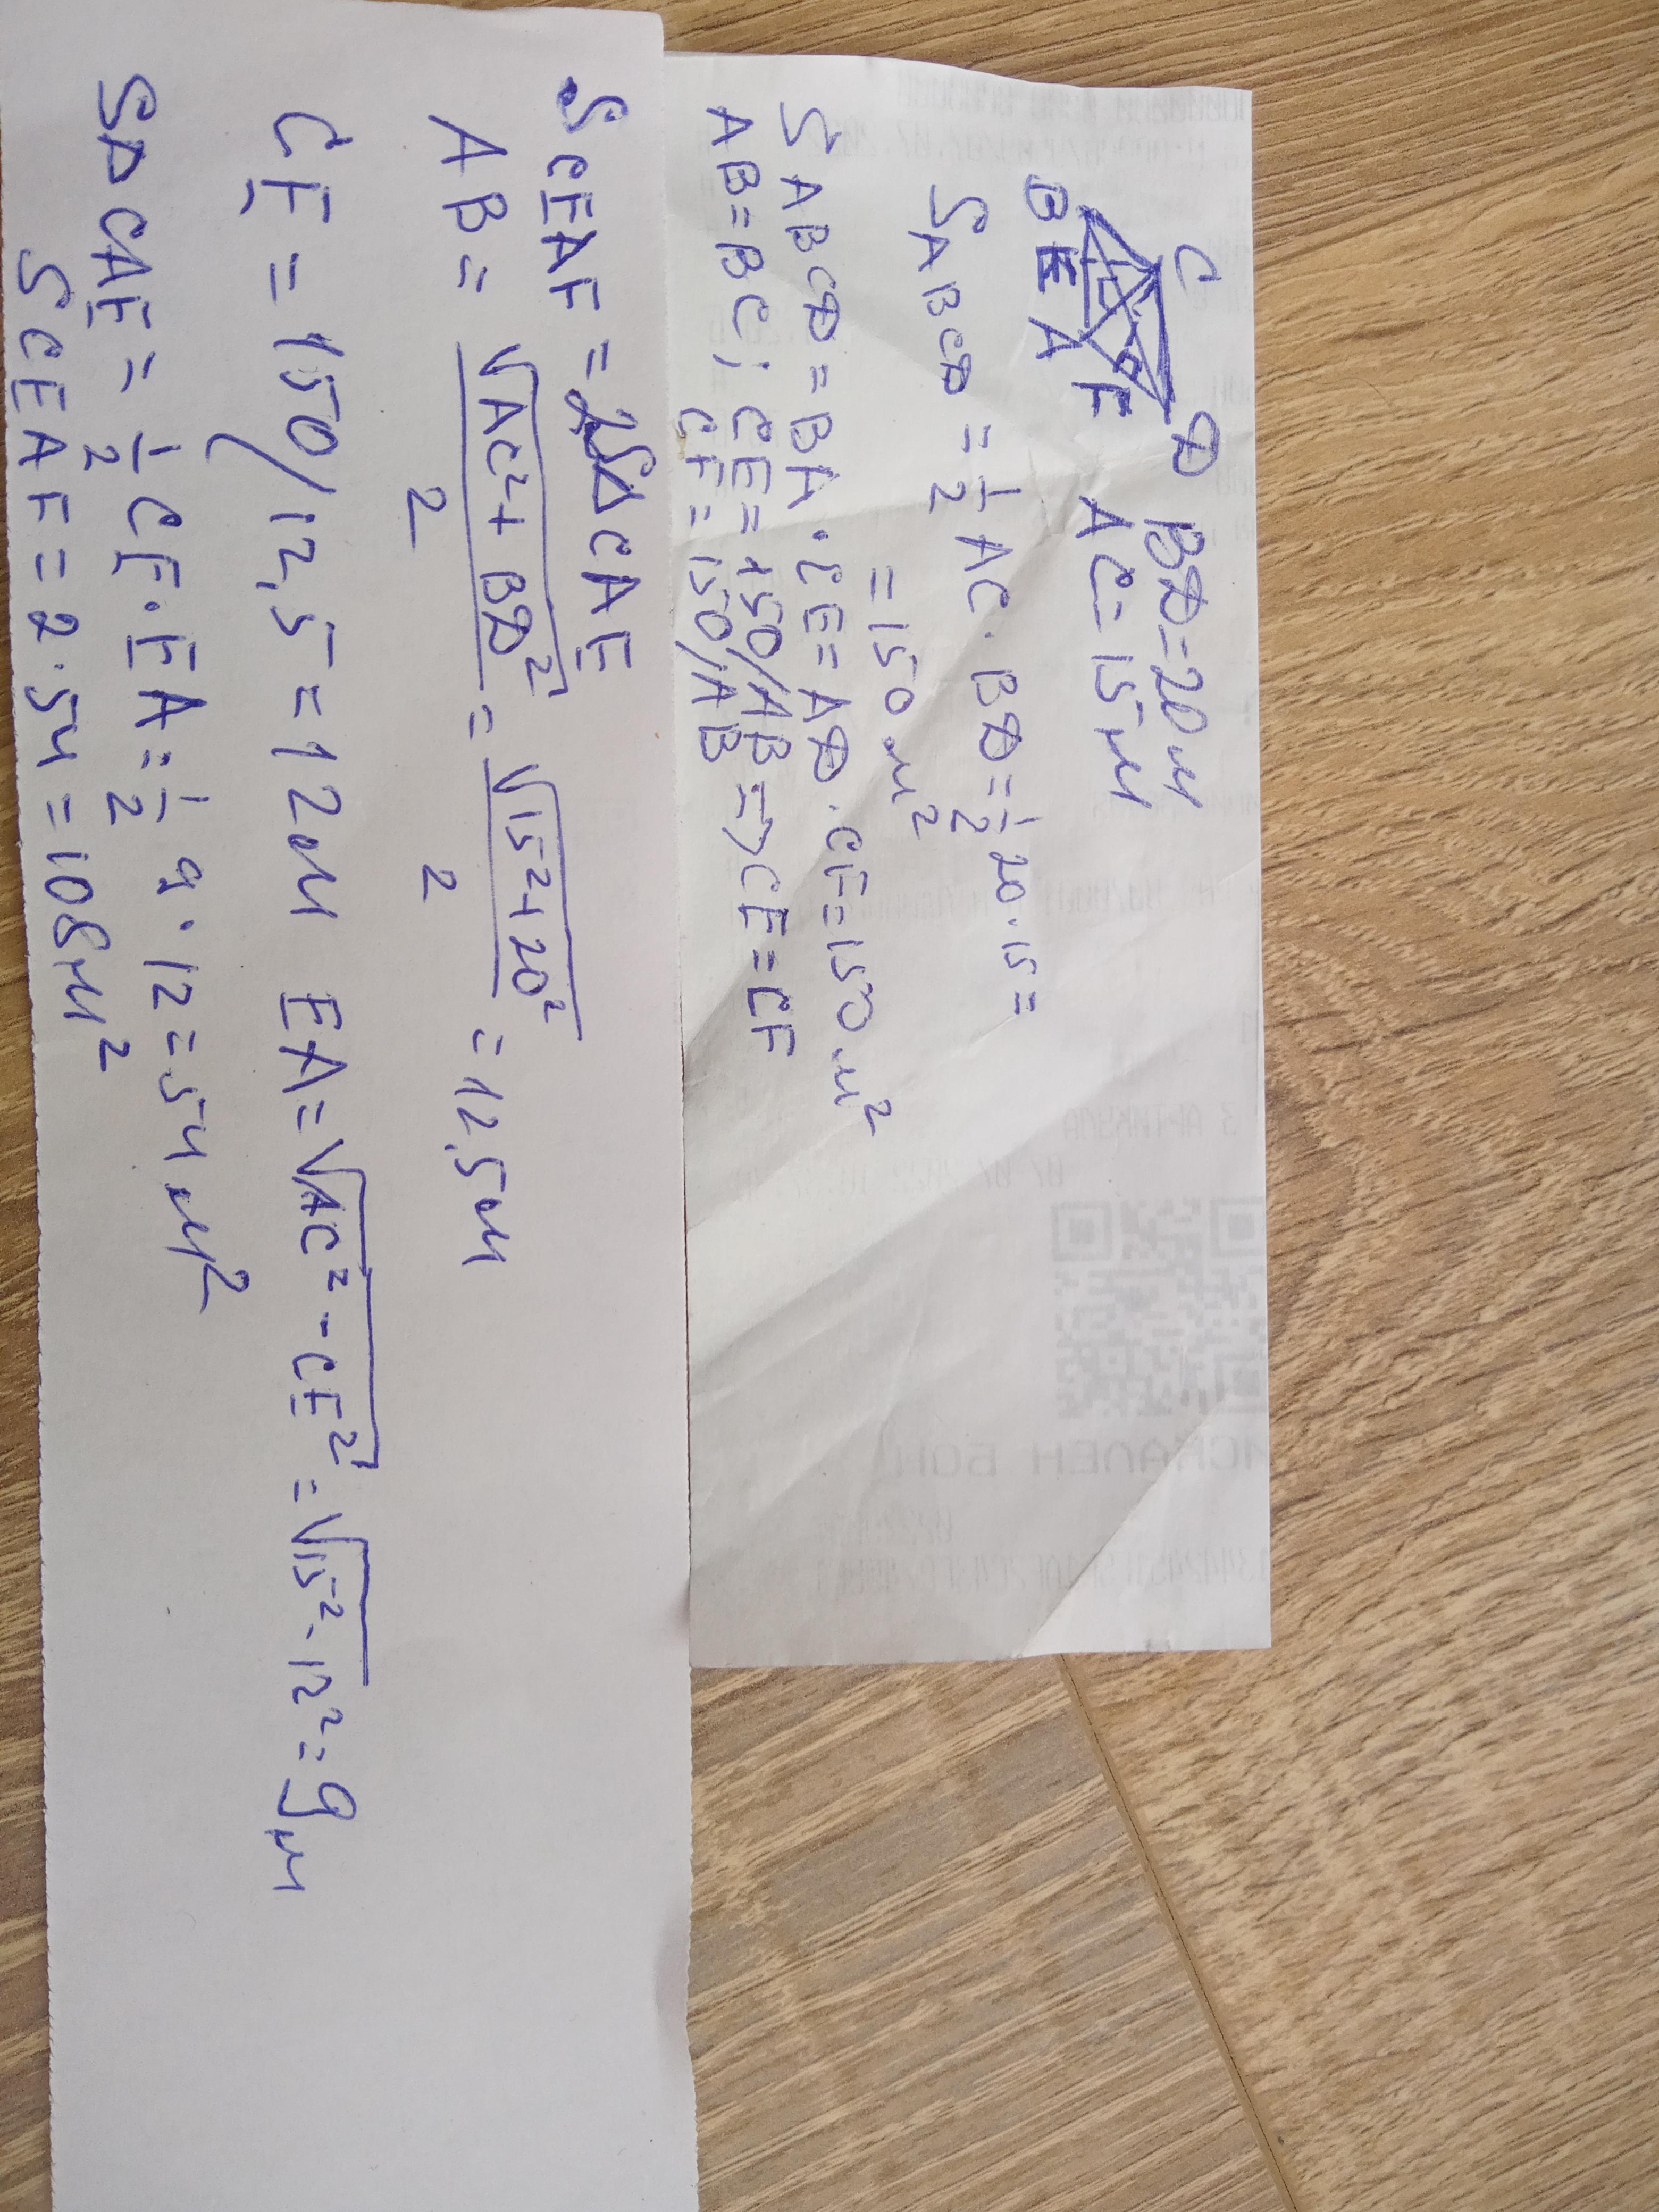 C
D
B
E
A
F
BD=20м
AC=15м
SABCD = 1/2 AC · BD = 1/2 20·15 =
= 150 м²
SABCD = BA · CE = AD · CF = 150 м²
AB = BC; CE = 150/AB => CE = CF
CF = 150/AB
SCEAF = 2S△CAE
AB = √AC²+BD²/2 = √15²+20²/2 = 12,5м
CE = 150/12,5 = 12м EA = √AC²-CE² = √15²-12² = 9м
S△CAE = 1/2 CE · EA = 1/2 9 · 12 = 54 м²
SCEAF = 2·54 = 108м²